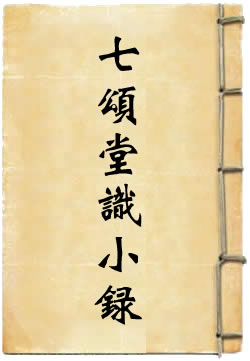 七頌堂識小録